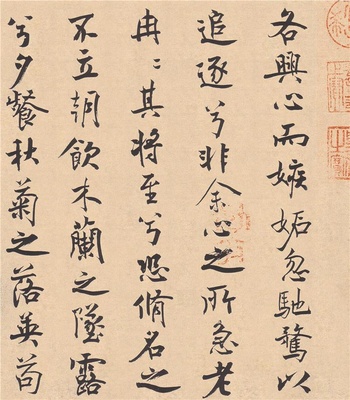 各興心而嫉妬忽馳騖以
追逐兮非余心之所急老
冉〻其將至兮恐脩名之
不立朝飲木蘭之墜露
兮夕餐秋菊之落英苟